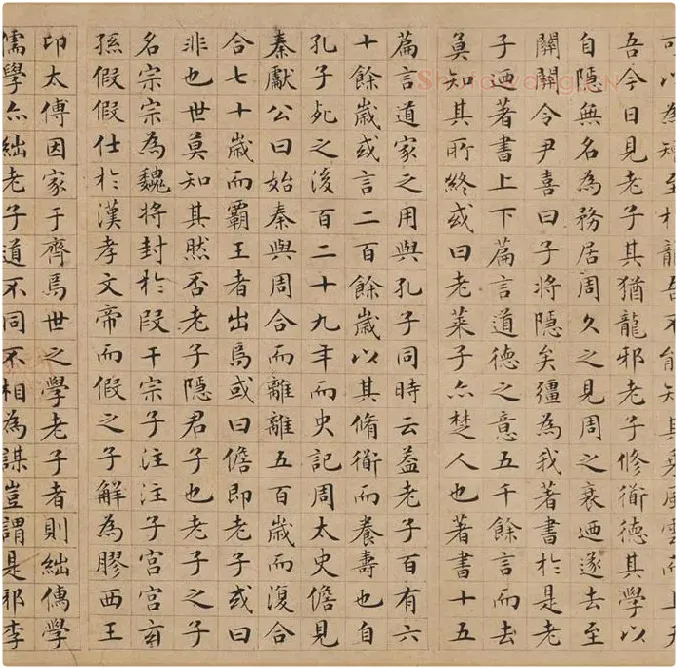 可以為矰至於龍吾不能知其乘風雲而上天
吾今日見老子其猶龍邪老子修衜德其學以
自隱無名為務居周久之見周之衰迺遂去至
關關令尹喜曰子將隱矣彊為我著書於是老
子迺著書上下篇言道德之意五千餘言而去
莫知其所終或曰老萊子亦楚人也著書十五
篇言道家之用與孔子同時云蓋老子百有六
十餘歲或言二百餘歲以其脩衜而養壽也自
孔子死之後百二十九年而史記周太史儋見
秦獻公曰始秦與周合而離離五百歲而復合
合七十歲而霸王者出焉或曰儋即老子或曰
非也世莫知其然否老子隱君子也老子之子
名宗宗為魏將封於段干宗子注注子宮宮玄
孫假假仕於漢孝文帝而假之子解為膠西王
卬太傅因家于齊焉世之學老子者則絀儒學
儒學亦絀老子道不同不相為謀豈謂是邪李